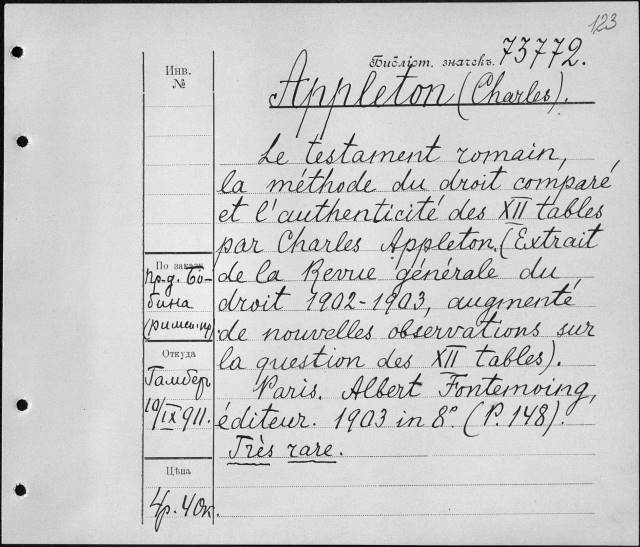 123
Библіот. значекъ 73772.
Инв.
№
Appleton (Charles).
Le testament romain,
la méthode du droit comparé
et l'authenticité des XII tables
par Charles Appleton. (Extrait
de la Revue générale du
droit 1902-1903, augmenté
de nouvelles observations sur
la question des XII tables).
Paris. Albert Fontemoing,
éditeur. 1903 in 8º. (P. 148).
Très rare.
По заказу
пр-д. Бо-
бина
(римск. пр)
Откуда
Гамбер
19/IX 911.
Цѣна
4р. 40к.